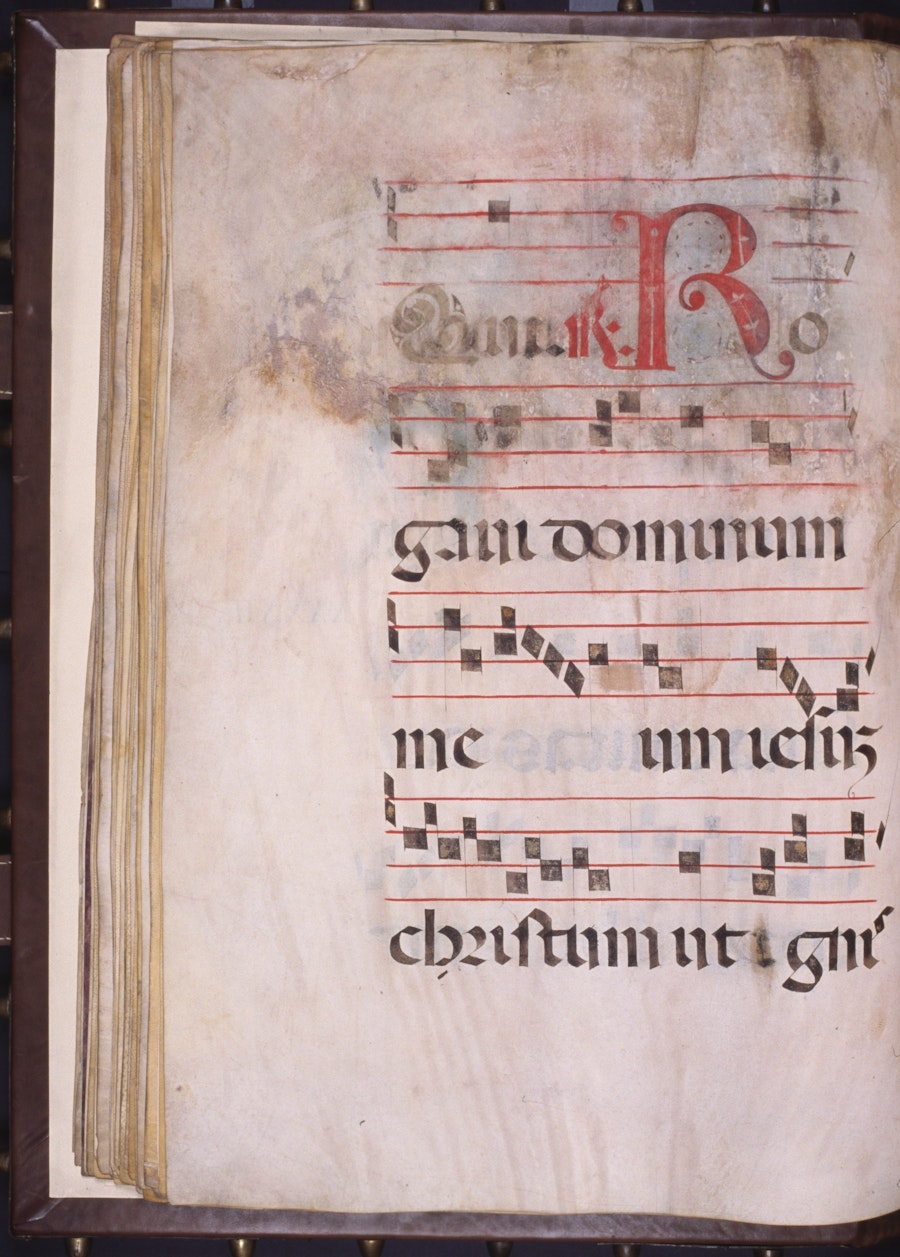 Ro
gaui dominum
me um iesuʒ
christum ut ignis